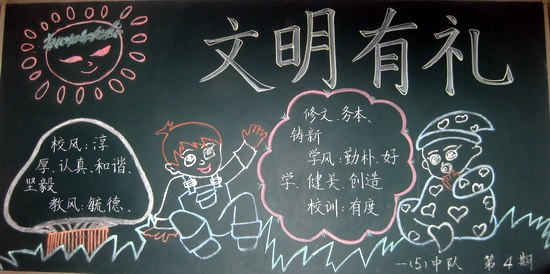 文明有礼
校风:淳
厚、认真、和谐、
坚毅
教风:毓德、
修文、务本、
铸新
学风:勤朴、好
学、健美、创造
校训:有度
一(5)中队 第4期